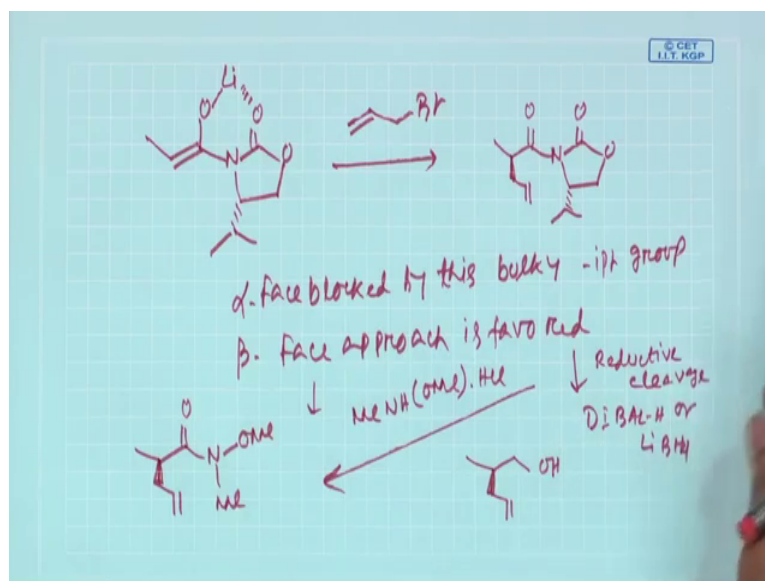 © CET
I.I.T. KGP
Li
O O
Br
N O
O O
N O
α-face blocked by this bulky -ipr group
β- face approach is favored
↓ MeNH(OMe).HCl
↓ Reductive
cleavage
DiBAL-H or
LiBH4
O
N OMe
Me
OH